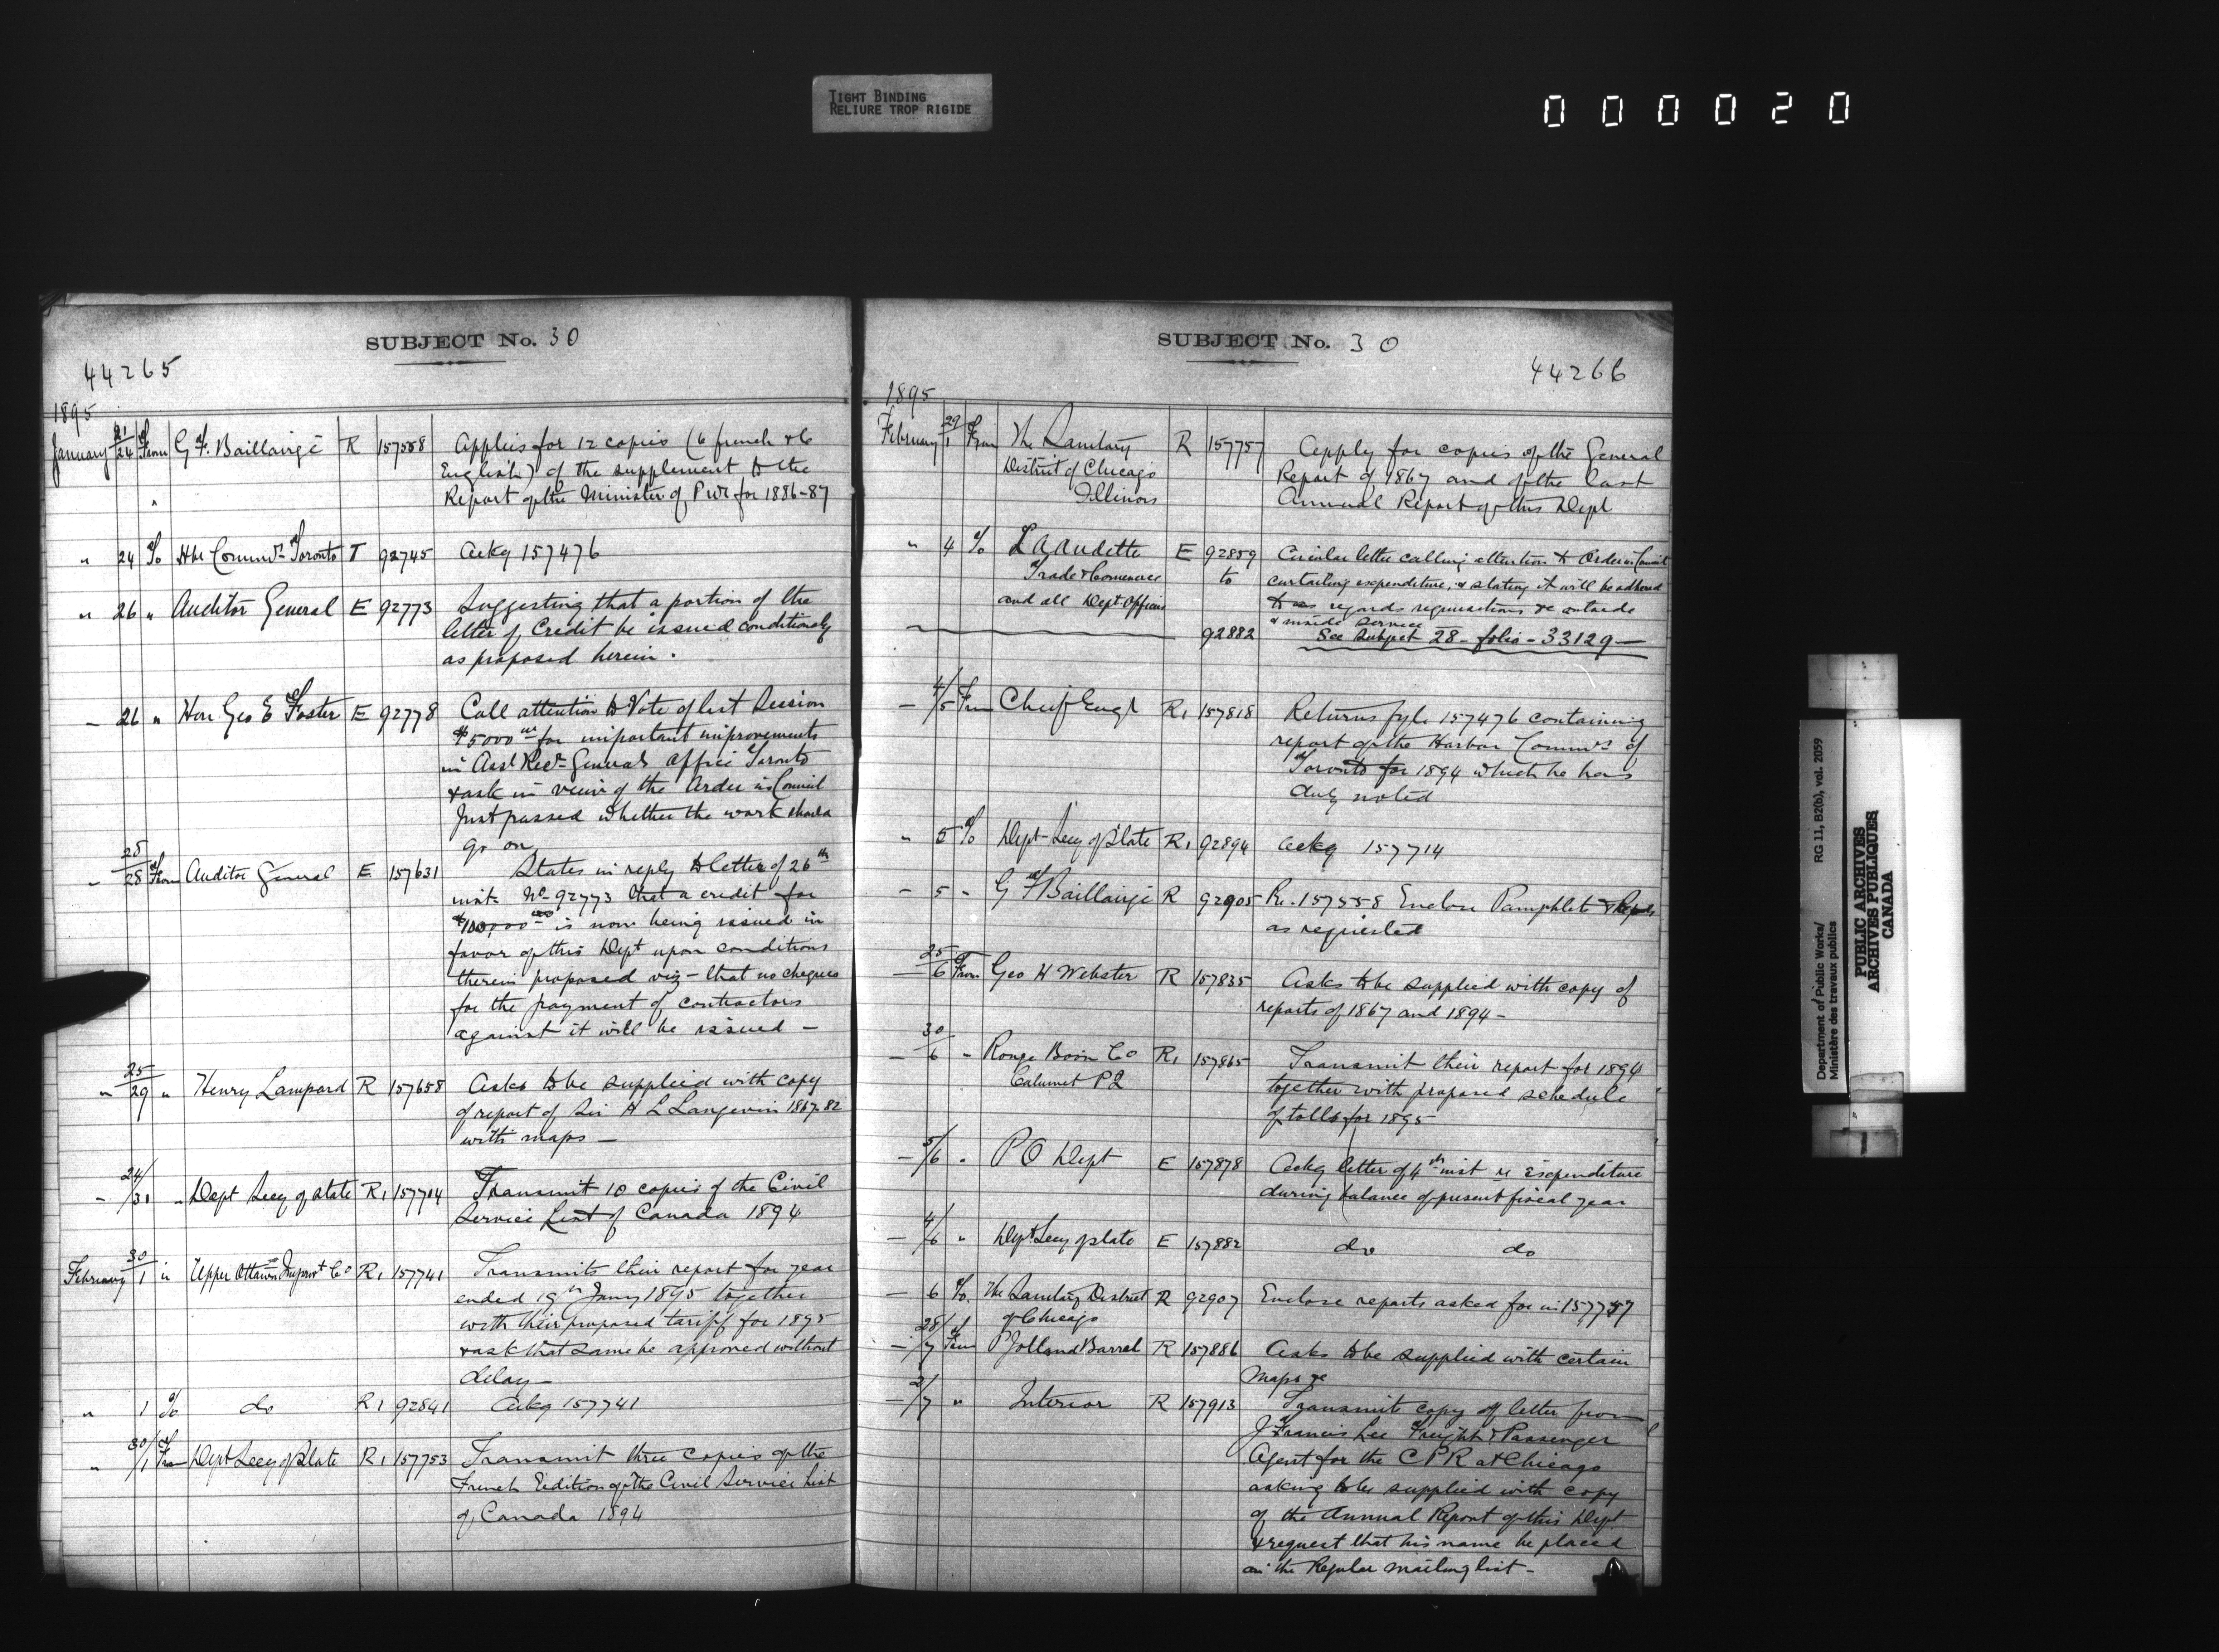 TIGHT BINDING
RELIURE TROP RIGIDE
000020
SUBJECT No. 30
44265
1895
January 21/24 From G F. Baillairgé R 157558 Applies for 12 copies (6 french & 6
English) of the supplement to the
Report of the Minister of P W for 1886-87
" 24 To Hbr Commrs Toronto T 92745 Ackg 157476
" 26 " Auditor General E 92773 Suggesting that a portion of the
letter of Credit be issued conditionally
as proposed herein.
– 26 " Hon Geo E Foster E 92778 Call attention to Vote of last Session
$5000 for important improvements
in Asst Recr General's Office Toronto
& ask in view of the Order in Council
Just passed whether the work should
go on
– 28/28 From Auditor General E. 157631 States in reply to letter of 26th
inst. No 92773 that a credit for
$100,000 is now being issued in
favor of this Dept upon conditions
therein proposed viz – that no cheques
for the payment of contractors
against it will be issued –
" 25/29 " Henry Lampard R 157658 Asks to be supplied with copy
of report of Sir H L Langevin 1867-82
with maps –
– 24/31 " Dept Secy of State R1 157714 Transmit 10 copies of the Civil
Service List of Canada 1894
February 30/1 " Upper Ottawa Improvt Co R1 157741 Transmits their report for year
ended 19th Jany 1895 together
with their proposed tariff for 1895
& ask that same be approved without
delay –
" 1 To do R1 92841 Ackg 157741
" 30/1 From Dept Secy of State R1 157753 Transmit three copies of the
French Edition of the Civil Service List
of Canada 1894
SUBJECT No. 30
44266
1895
February 29/1 From The Sanitary R 157757 Apply for copies of the General
District of Chicago Report of 1867 and of the last
Illinois Annual Report of this Dept
" 4 To L A Audette E 92859 Circular letter calling attention to Order in Council
Trade & Commerce to curtailing expenditure, & stating it will be adhered
and all Dept. Officers to as regards requisitions &c outside
& inside service
92882 See Subject 28 – folio – 33129 –
– 4/5 From Chief Engr R1 157818 Returns fyle 157476 containing
report of the Harbor Commrs of
Toronto for 1894 which he has
duly noted
" 5 To Dept Secy of State R1 92894 Ackg 157714
– 5 " G F Baillairgé R 92905 Re. 157558 Enclose Pamphlets & Reports
as requested
– 25/6 From Geo H Webster R 157835 Asks to be supplied with copy of
reports of 1867 and 1894 –
– 30/6 " Rouge Boom Co R1 157865 Transmit their report for 1894
Calumet P Q together with proposed schedule
of tolls for 1895
– 5/6 " P O Dept E 157878 Ackg letter of 4th inst re expenditure
during balance of present fiscal year
– 4/6 " Dept Secy of State E 157882 do do
– 6 To The Sanitary District R 92907 Enclose reports asked for in 157757
of Chicago
– 28/7 From P Jolland Barrel R 157886 Asks to be supplied with certain
maps &c
– 2/7 " Interior R 157913 Transmits copy of letter from
J Francis Lee Freight & Passenger
Agent for the C P R at Chicago
asking to be supplied with copy
of the Annual Report of this Dept
& request that his name be placed
on the Regular mailing list –
Department of Public Works/
Ministère des travaux publics
RG 11, B2(b), vol. 2059
PUBLIC ARCHIVES
ARCHIVES PUBLIQUES
CANADA